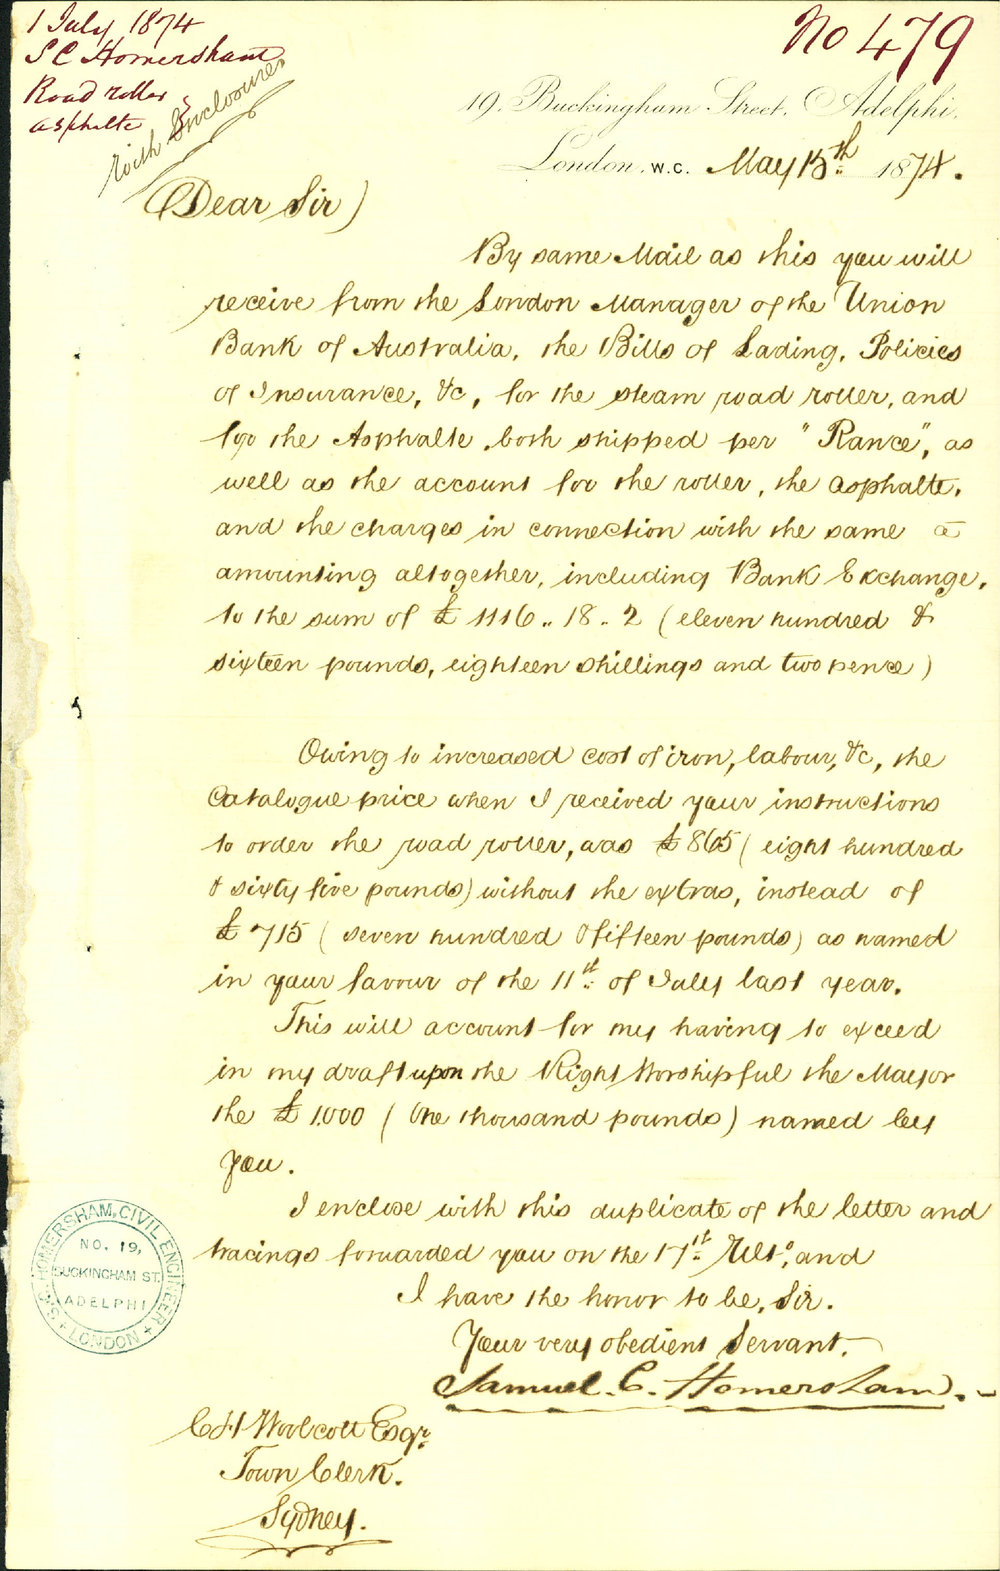 1 July 1874
S C Homersham
Road roller
asphalte
with Enclosures
No 479
19. Buckingham Street, Adelphi,
London. W.C. May 15th 1874.
Dear Sir)
By same Mail as this you will
receive from the London Manager of the Union
Bank of Australia, the Bills of Lading, Policies
of Insurance, &c, for the steam road roller, and
for the Asphalte both shipped per "Rance", as
well as the account for the roller, the asphalte,
and the charges in connection with the same
amounting altogether, including Bank Exchange,
to the sum of £1116.. 18.. 2 (eleven hundred &
sixteen pounds, eighteen shillings and two pence)
Owing to increased cost of iron, labour, &c, the
Catalogue price when I received your instructions
to order the road roller, was £865 (eight hundred
& sixty five pounds) without the extras, instead of
£715 (seven hundred & fifteen pounds) as named
in your favour of the 11th of July last year.
This will account for my having to exceed
in my draft upon the Right Worshipful the Mayor
the £1000 (One thousand pounds) named by
you.
I enclose with this duplicate of the letter and
tracings forwarded you on the 17th Ulto, and
I have the honor to be, Sir.
Your very obedient Servant.
Samuel. C. Homersham.
S.C. HOMERSHAM, CIVIL ENGINEER
NO. 19,
BUCKINGHAM ST.
ADELPHI
LONDON
C H Woolcott Esqr.
Town Clerk.
Sydney.